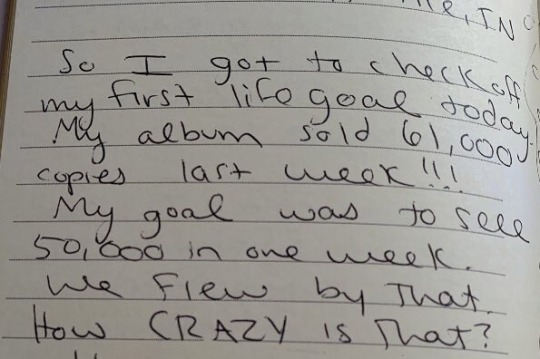 IN
So I got to check off
my first life goal today.
My album sold 61,000
copies last week!!!
My goal was to sell
50,000 in one week.
We flew by that.
How CRAZY is that?